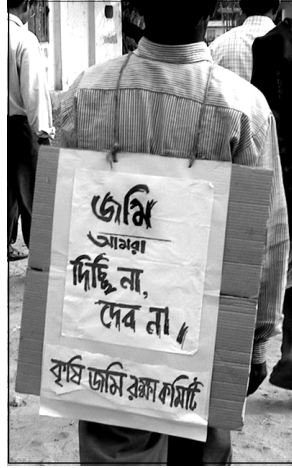 জমি
আমরা
দিচ্ছি না,
দেব না॥
কৃষি জমি রক্ষা কমিটি